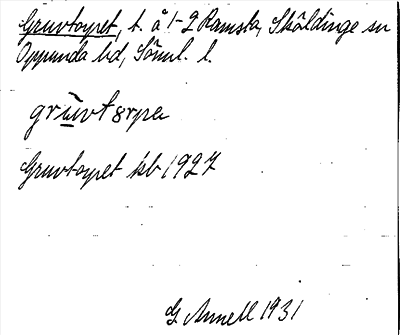 Gruvtorpet, t. å 1-2 Ramsta, Sköldinge sn
Oppunda hd, Söml. l.
grùvtørpə
Gruvtorpet kb 1927
G. Annell 1931